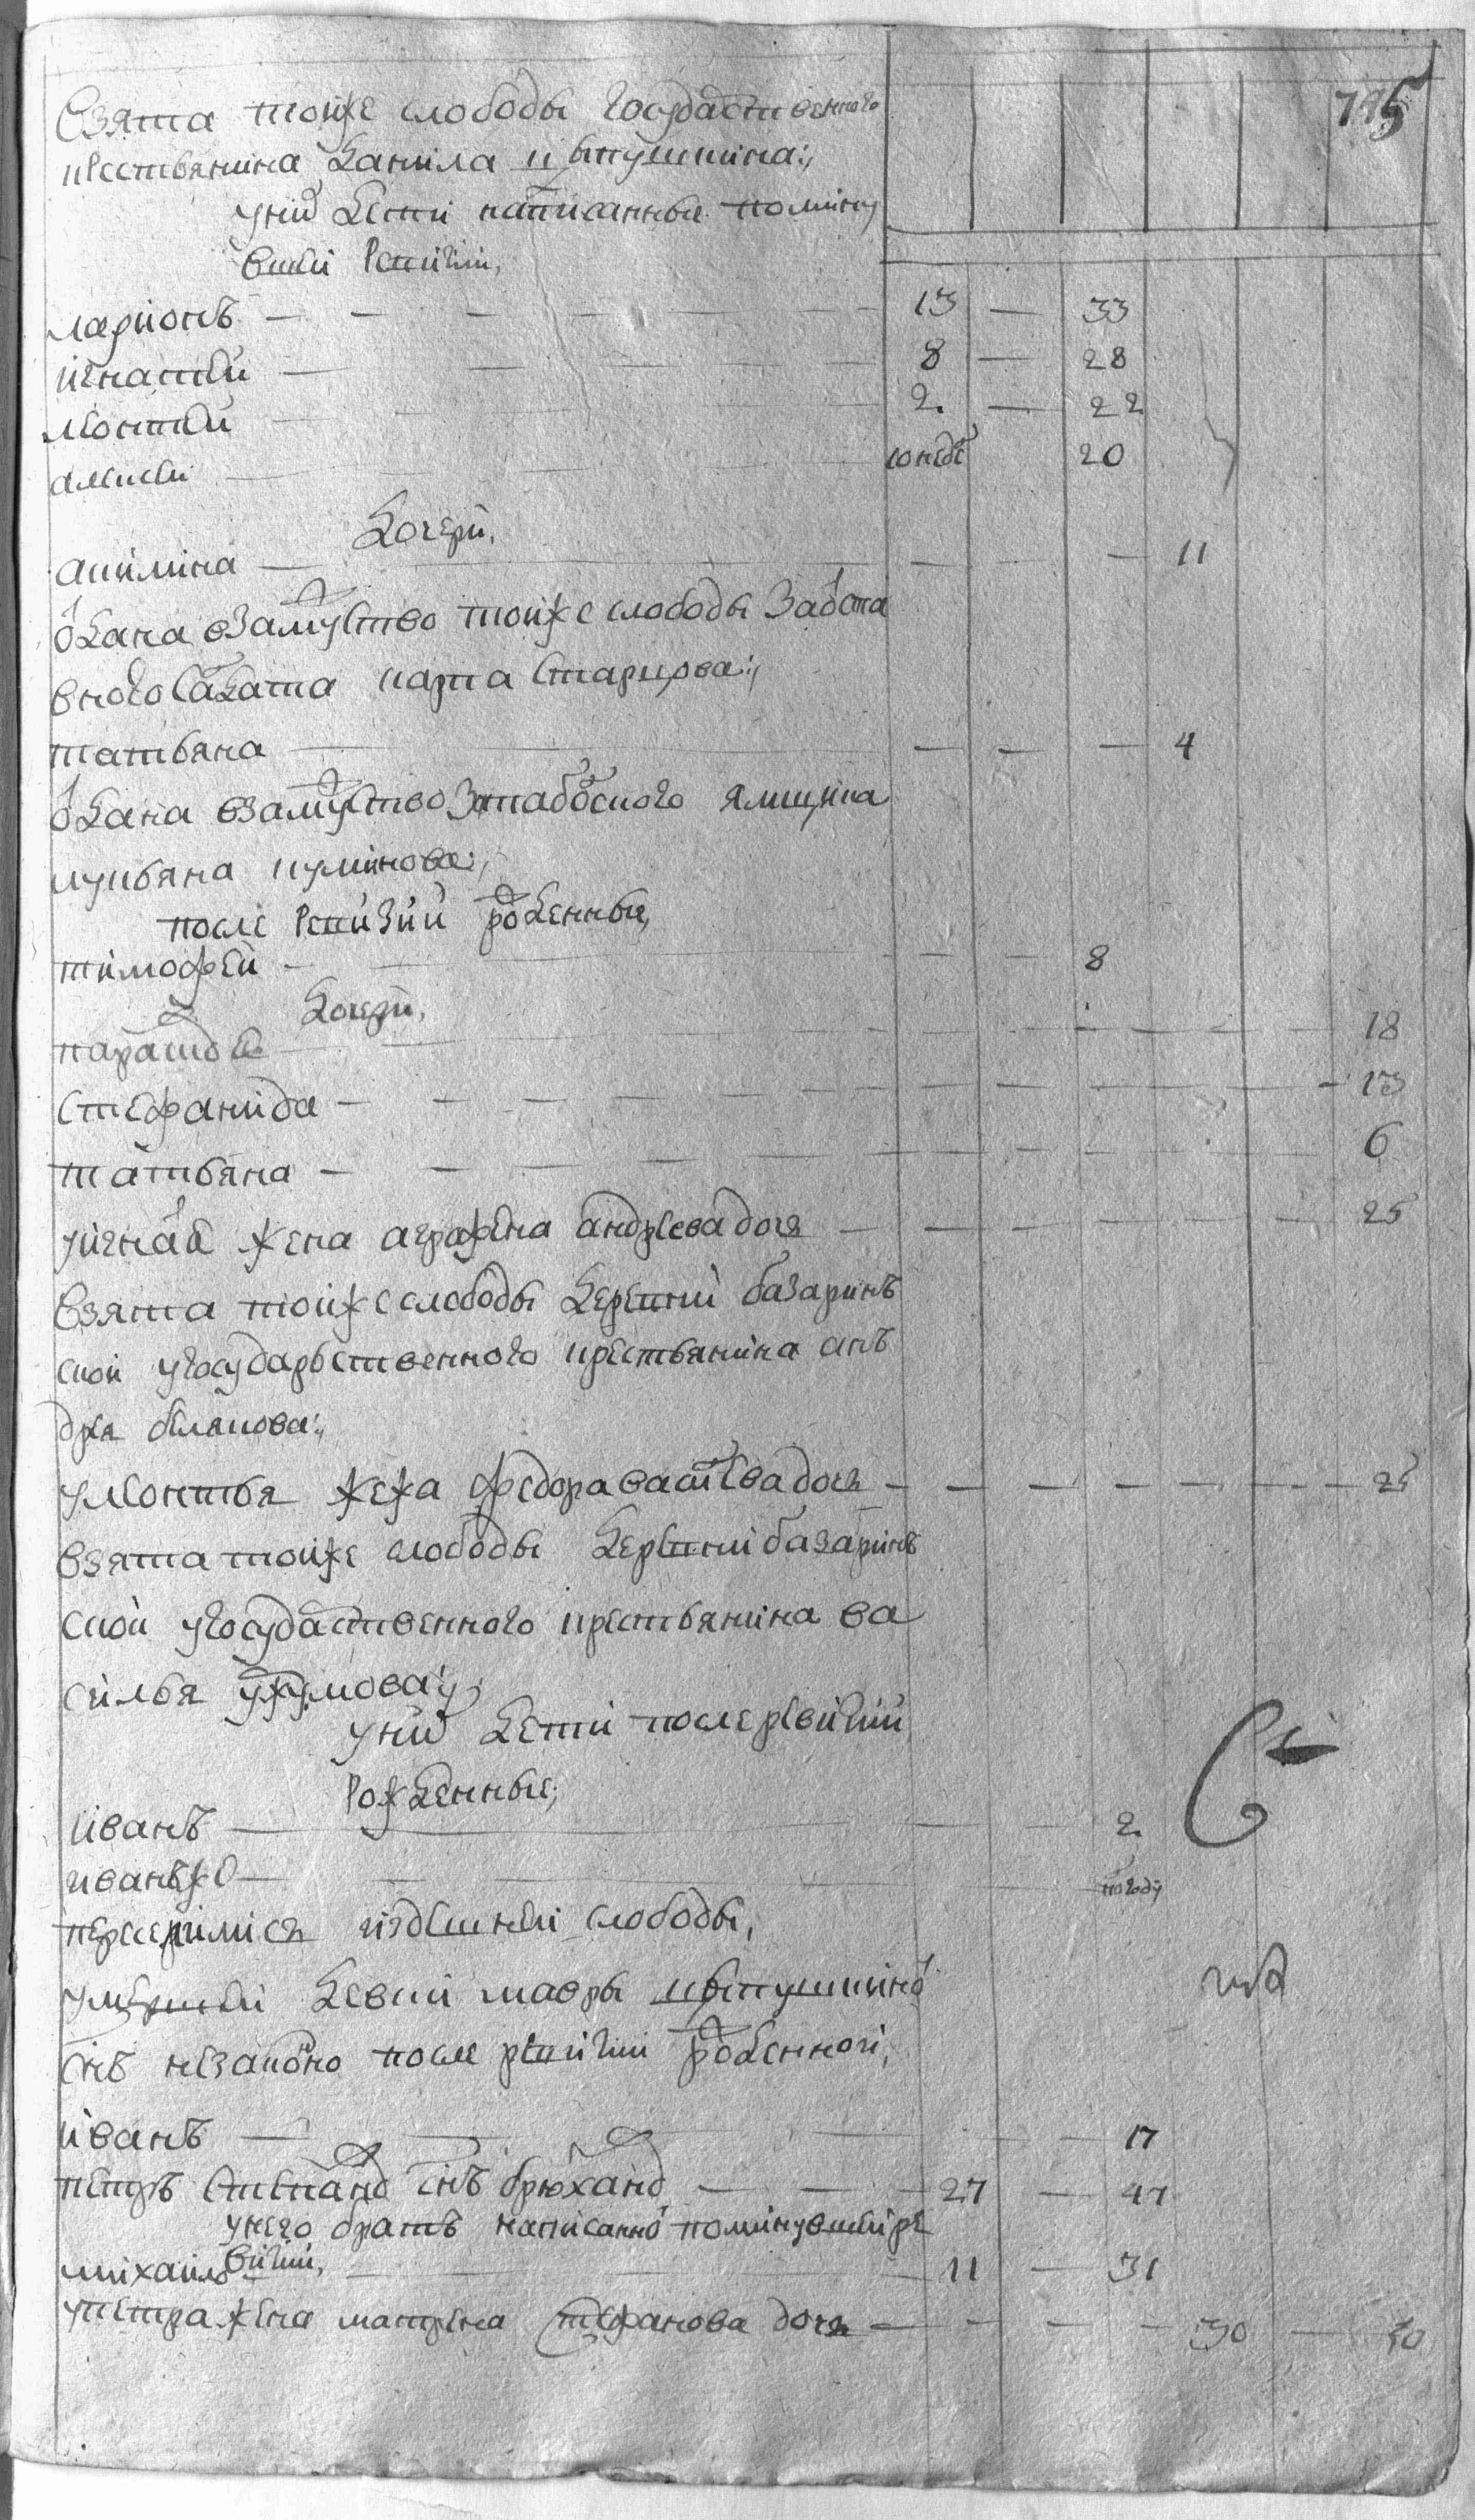 795
взята тойже слободы государственного
крестьянина данила
у них дети написанные помину
вшей ревизии,
ларионъ — 13 — 33
игнатей — 8 — 28
леонтей — 2. — 22
алексей — 20
дочери,
акилина — 11
отдана взамужство тойже слободы
солдата карпа
татьяна — 4
отдана взамужство ямщика
лукьяна
после ревизии рожденные,
тимофей — 8
дочери,
парасковья — 18
стефанида — 13
татьяна — 6
у игнатья жена аграфена андреева дочь — 25
взята тойже слободы деревни базарин
ской у государьственного крестьянина ан
дрея белякова:,
у леонтья жена федора васильева дочь — 25
взята тойже слободы деревни базарин
ской у государственного крестьянина ва
силья
у них дети после ревизии
рожденные;
иванъ — 2.
иванъже — полгоду
здешней слободы,
умершей девки мавры
снъ незаконно после ревизии рожденной,
иванъ — 17
петръ степановъ снъ брюхановъ — 27 — 47
у него братъ написанной поминувшей ре
визии,
михайло — 11 — 31
у петра жена матрена стефанова дочь — 30 — 50